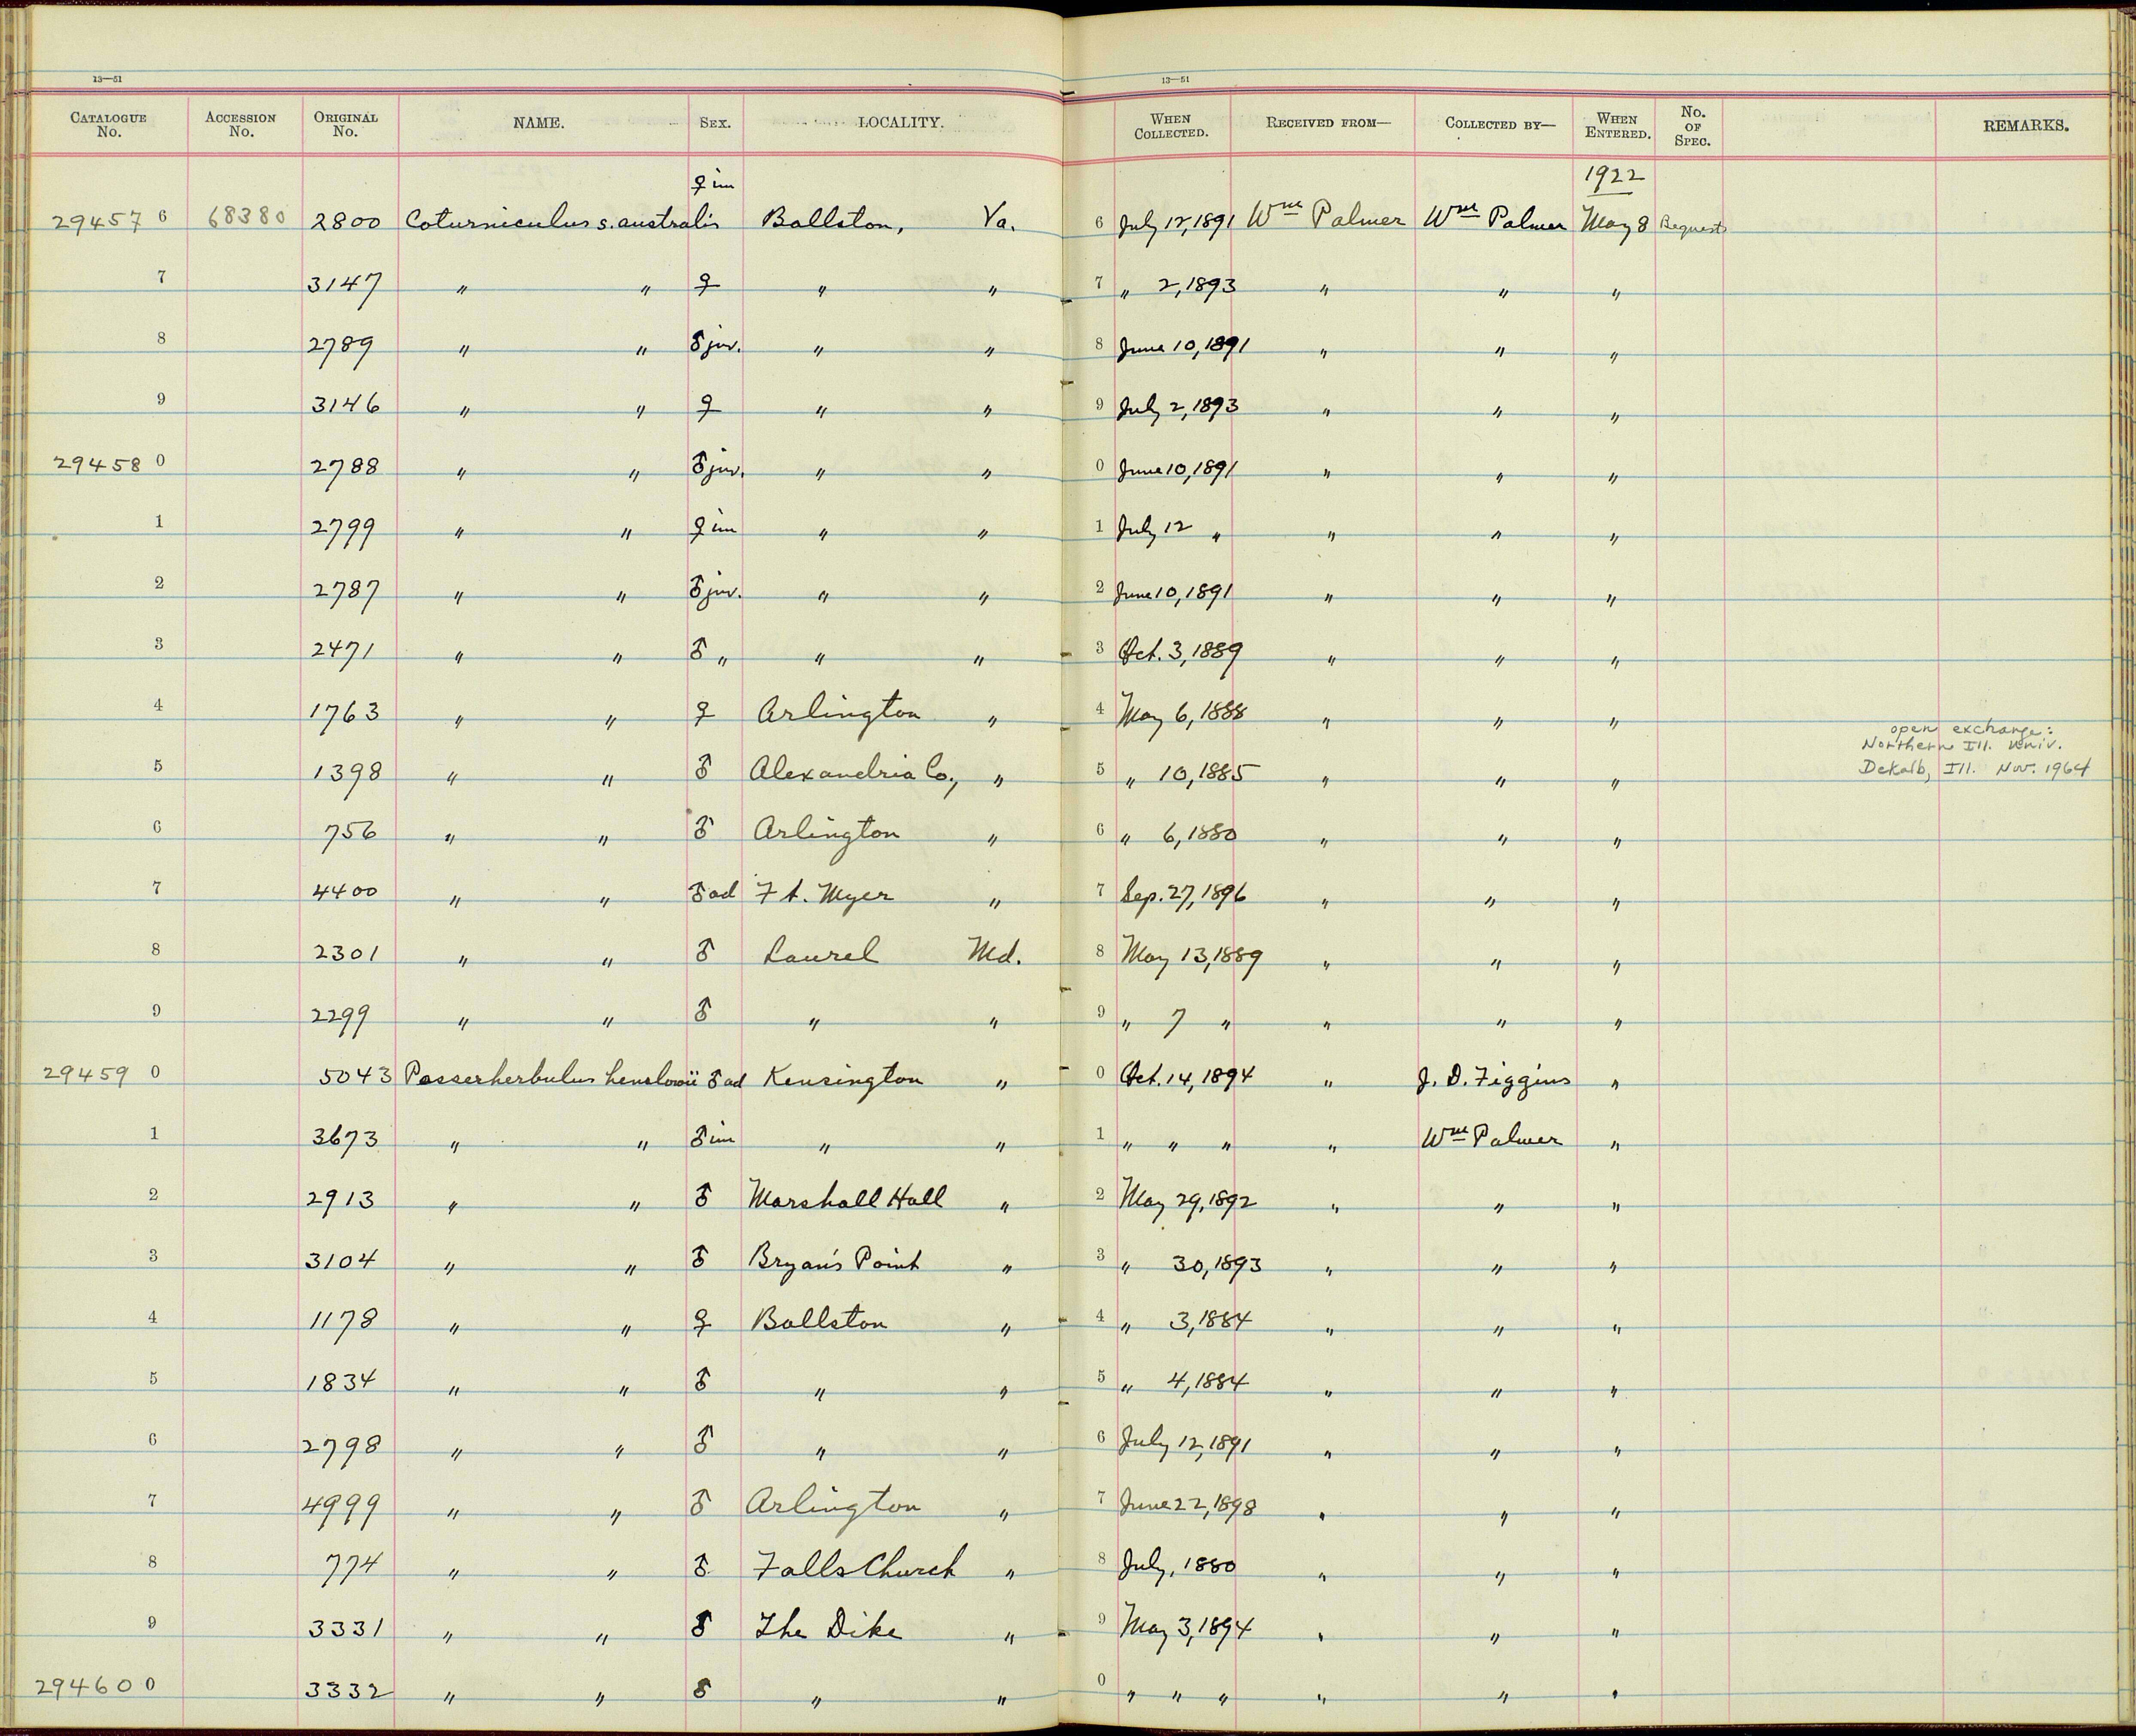 13—51 13—51
CATALOGUE No. ACCESSION No. ORIGINAL No. NAME. SEX. LOCALITY. WHEN COLLECTED. RECEIVED FROM— COLLECTED BY— WHEN ENTERED. No. OF SPEC. REMARKS.
♀ im 1922
29457 6 68380 2800 Coturniculus s. australis Ballston, Va. 6 July 12, 1891 Wm Palmer Wm Palmer May 8 Bequest
7 3147 " " ♀ " " 7 " 2, 1893 " " "
8 2789 " " ♂ juv. " " 8 June 10, 1891 " " "
9 3146 " " ♀ " " 9 July 2, 1893 " " "
29458 0 2788 " " ♂ juv. " " 0 June 10, 1891 " " "
1 2799 " " ♀ im " " 1 July 12 " " " "
2 2787 " " ♂ juv. " " 2 June 10, 1891 " " "
3 2471 " " ♂ " " " 3 Oct. 3, 1889 " " "
4 1763 " " ♀ Arlington " 4 May 6, 1888 " " "
open exchange:
Northern Ill. Univ.
5 1398 " " ♂ Alexandria Co., " 5 " 10, 1885 " " " Dekalb, Ill. Nov. 1964
6 756 " " ♂ Arlington " 6 " 6, 1880 " " "
7 4400 " " ♂ ad Ft. Myer " 7 Sep. 27, 1896 " " "
8 2301 " " ♂ Laurel Md. 8 May 13, 1889 " " "
9 2299 " " ♂ " " 9 " 7 " " " "
29459 0 5043 Passerherbulus henslowii ♂ ad Kensington " 0 Oct. 14, 1894 " J. D. Figgins "
1 3673 " " ♂ im " " 1 " " " " Wm Palmer "
2 2913 " " ♂ Marshall Hall " 2 May 29, 1892 " " "
3 3104 " " ♂ Bryan's Point " 3 " 30, 1893 " " "
4 1178 " " ♀ Ballston " 4 " 3, 1884 " " "
5 1834 " " ♂ " " 5 " 4, 1884 " " "
6 2798 " " ♂ " " 6 July 12, 1891 " " "
7 4999 " " ♂ Arlington " 7 June 22, 1898 " " "
8 774 " " ♂ Falls Church " 8 July, 1880 " " "
9 3331 " " ♂ The Dike " 9 May 3, 1894 " " "
29460 0 3332 " " ♂ " " 0 " " " " " "